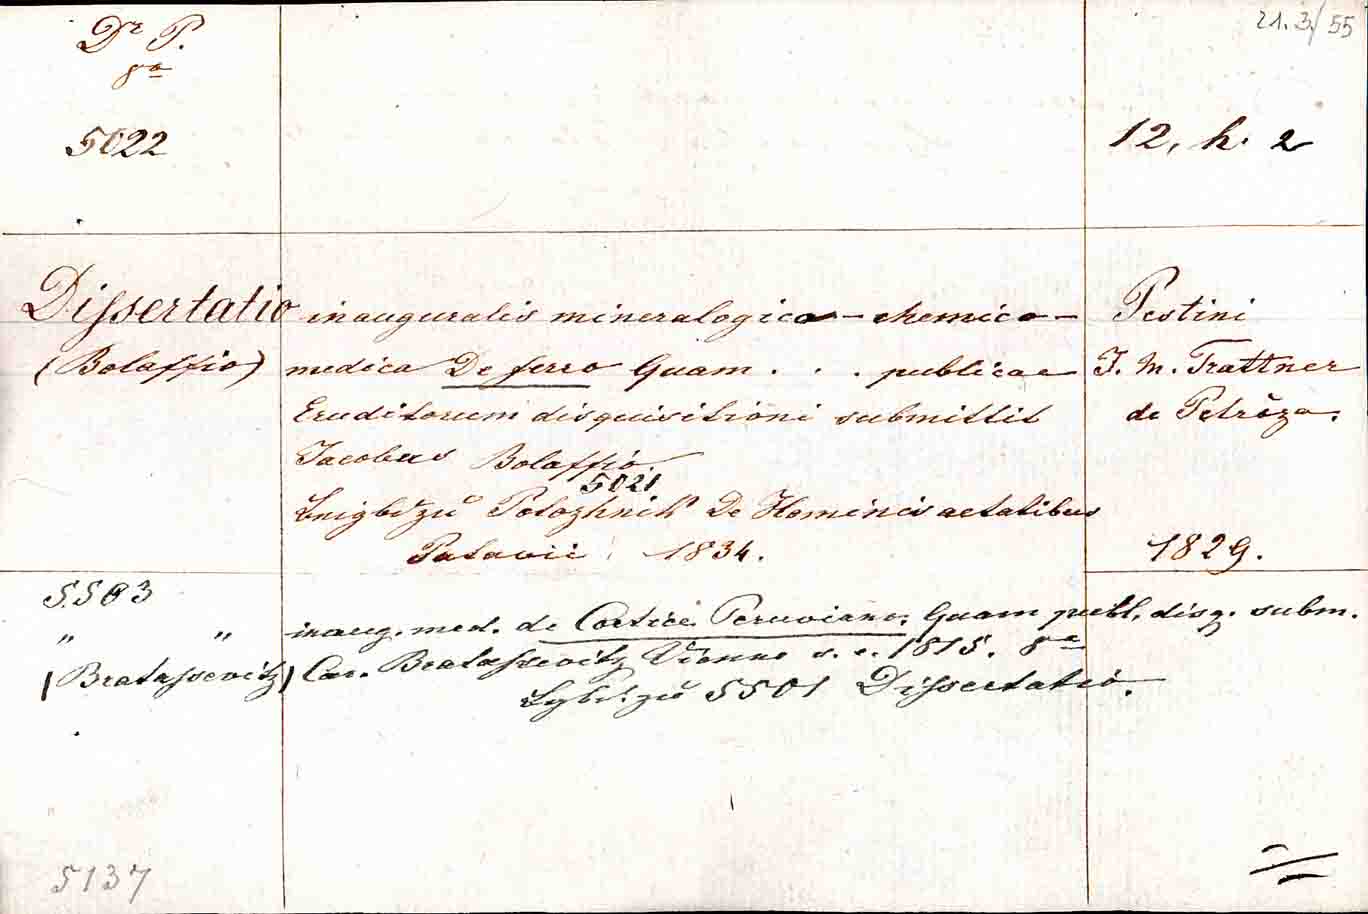 Dr P.
8o
21.3./55
5022
12, h. 2
Dissertatio inauguralis mineralogico-chemico-
(Bolaffio) medica De ferro Quam . . . publicae
Eruditorum disquisitioni submittit
Jacobus Bolaffio.
Pestini
J. M. Trattner
de Petróza.
1829.
5021
Beigbd zu Potozhnik De Hominis aetatibus
Patavii 1834.
5503
" " inaug. med. de Cortice Peruviano. Quam publ. disq. subm.
(Bratassevitz) Car. Bratassevitz Viennae 1815. 8o
zu 5501 Dissertatio.
5137